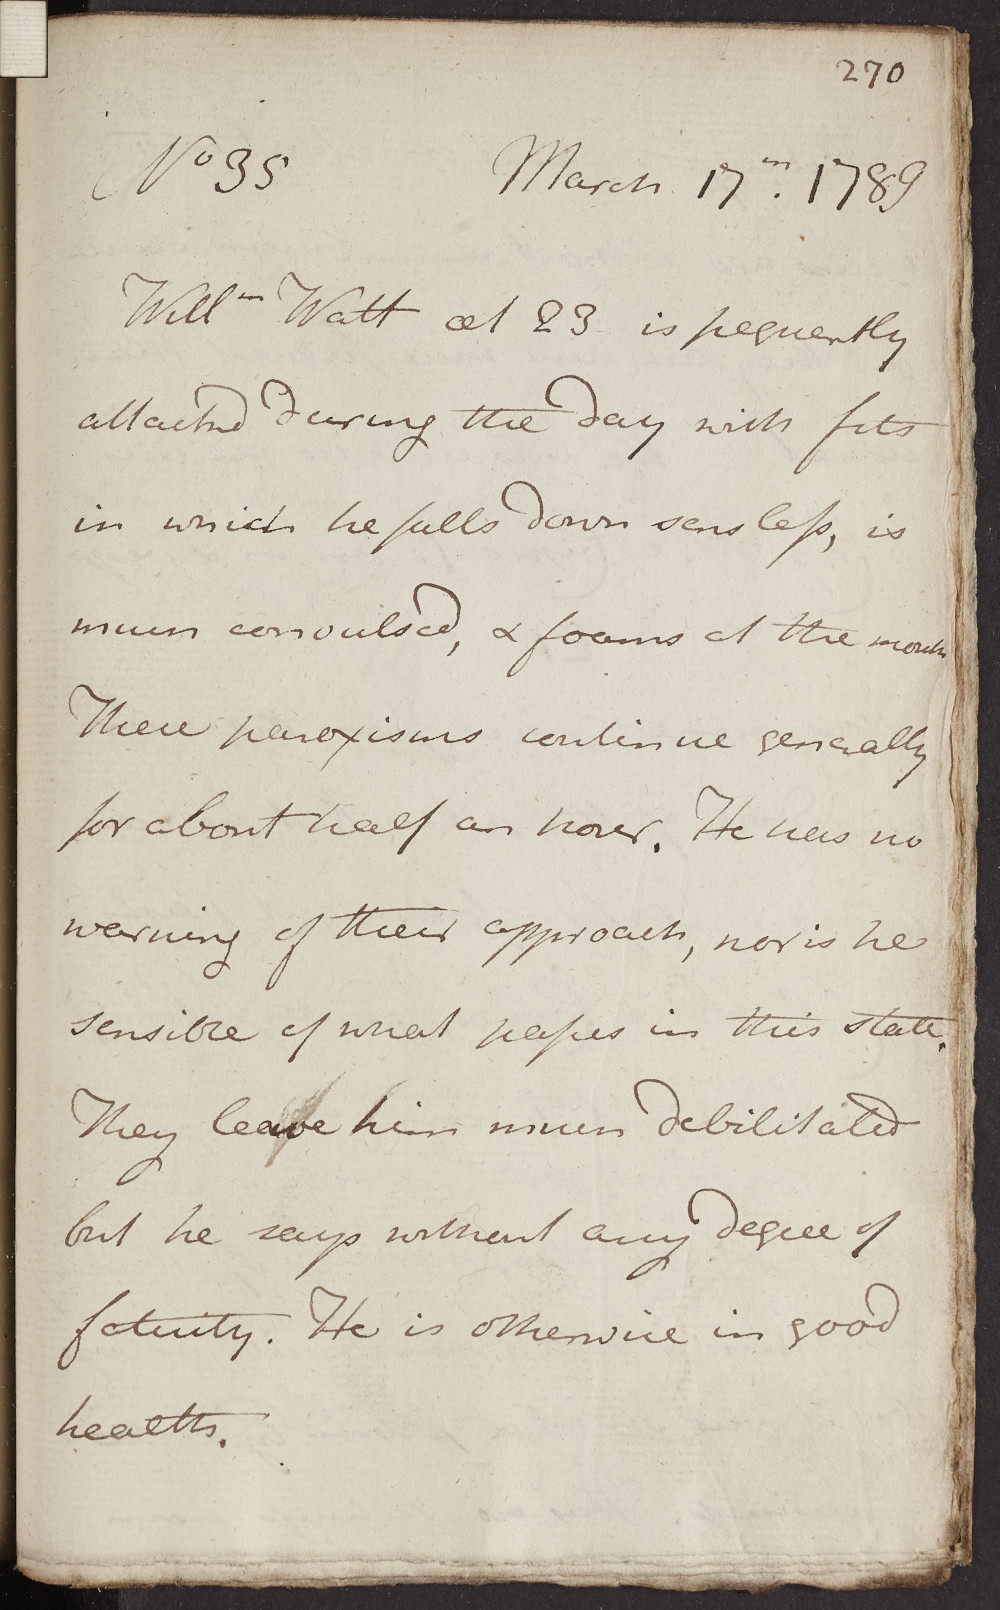 270
No 35 March 17th. 1789
Willm Watt æt 23 is frequently
attacked during the day with fits
in which he falls down sensless, is
much convulsed, & foams at the mouth
These paroxisms continue generally
for about half an hour. He has no
warning of their approach, nor is he
sensible of what passes in this state.
They leave him much debilitated
but he says without any degree of
fatuity. He is otherwise in good
health.